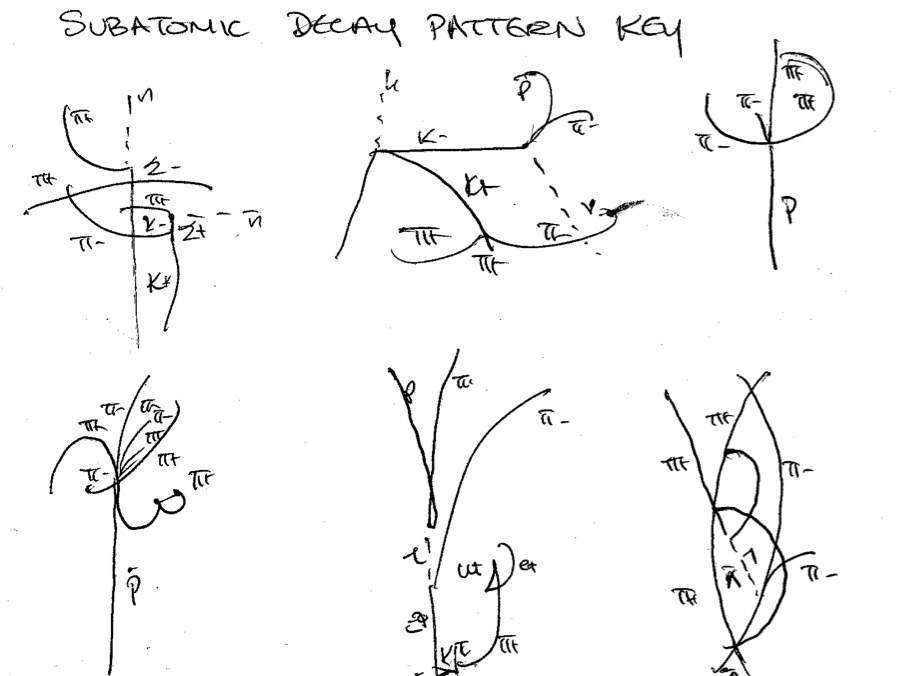 SUBATOMIC DECAY PATTERN KEY
π+
n
Σ-
π+
π+
K-
Σ+
n
π-
K+
K-
p
π-
K+
π+
π+
π-
π+
π+
π-
π-
p
π-
π-
π-
π+
π+
π+
π-
π+
p
p
π-
π-
e+
π+
π+
π+
π-
π-
π+